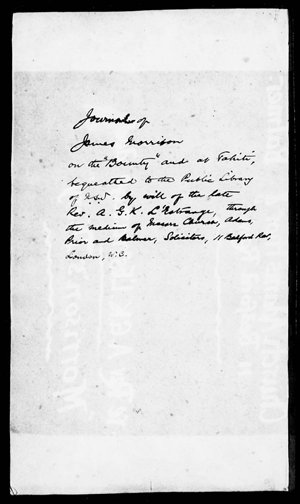 Journal of
James Morrison
on the "Bounty" and at Tahiti,
bequeathed to the Public Library
of N.S.W. by will of the late
Rev. A. G. K. L'Estrange, through
the medium of Messrs Church, Adams,
Prior and Balmer, Solicitors, 11 Bedford Row,
London, W.C.